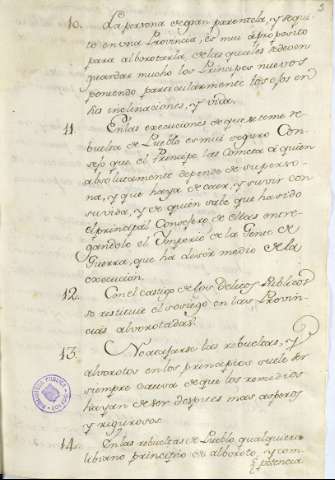 5
10. La persona de gran parentela, y sequi-
to en una Provincia, es mui aproposito
para alborotarla, de las quales se deven
guardar mucho los Principes nuevos
poniendo particularmente los ojos en
sus inclinaciones, y vida.
11. En las execuciones de que se teme re-
buelta de Pueblo es mui seguro Con-
sejo que el Principe las cometa à quien
absolutamente depende de su perso-
na, y que haya de caer, y suvir con
su vida, y de quien sabe que ha sido
el principal Consejero de ellas entre-
gandole el Imperio de la Gente de
Guerra, que ha de ser medio de la
execucion.
12. Con el castigo de los Delitos Publicos
se restituie el sosiego en las Provin-
cias alborotadas.
13. No atajarse las rebueltas, y
alborotos en los principios suele ser
siempre causa de que los remedios
hayan de ser despues mas asperos
y rigurosos.
14. En las rebueltas de Pueblo qualquiera
libiano principio de alboroto, y com-
petencia